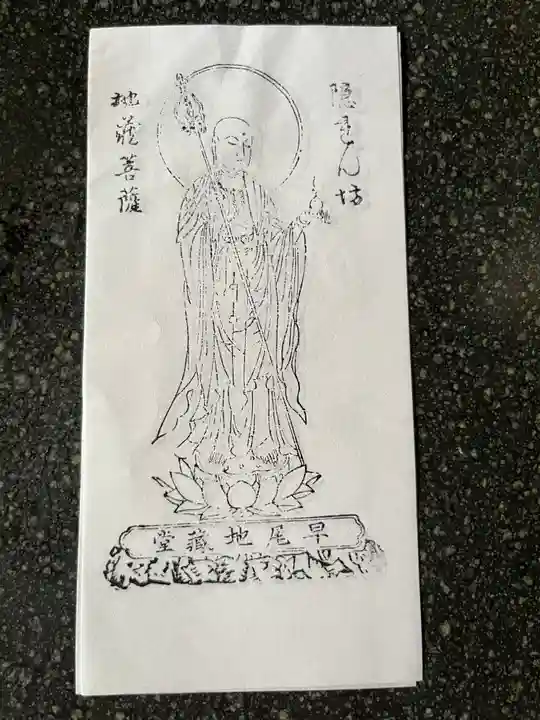 隠れん坊
地蔵菩薩
早尾地蔵堂